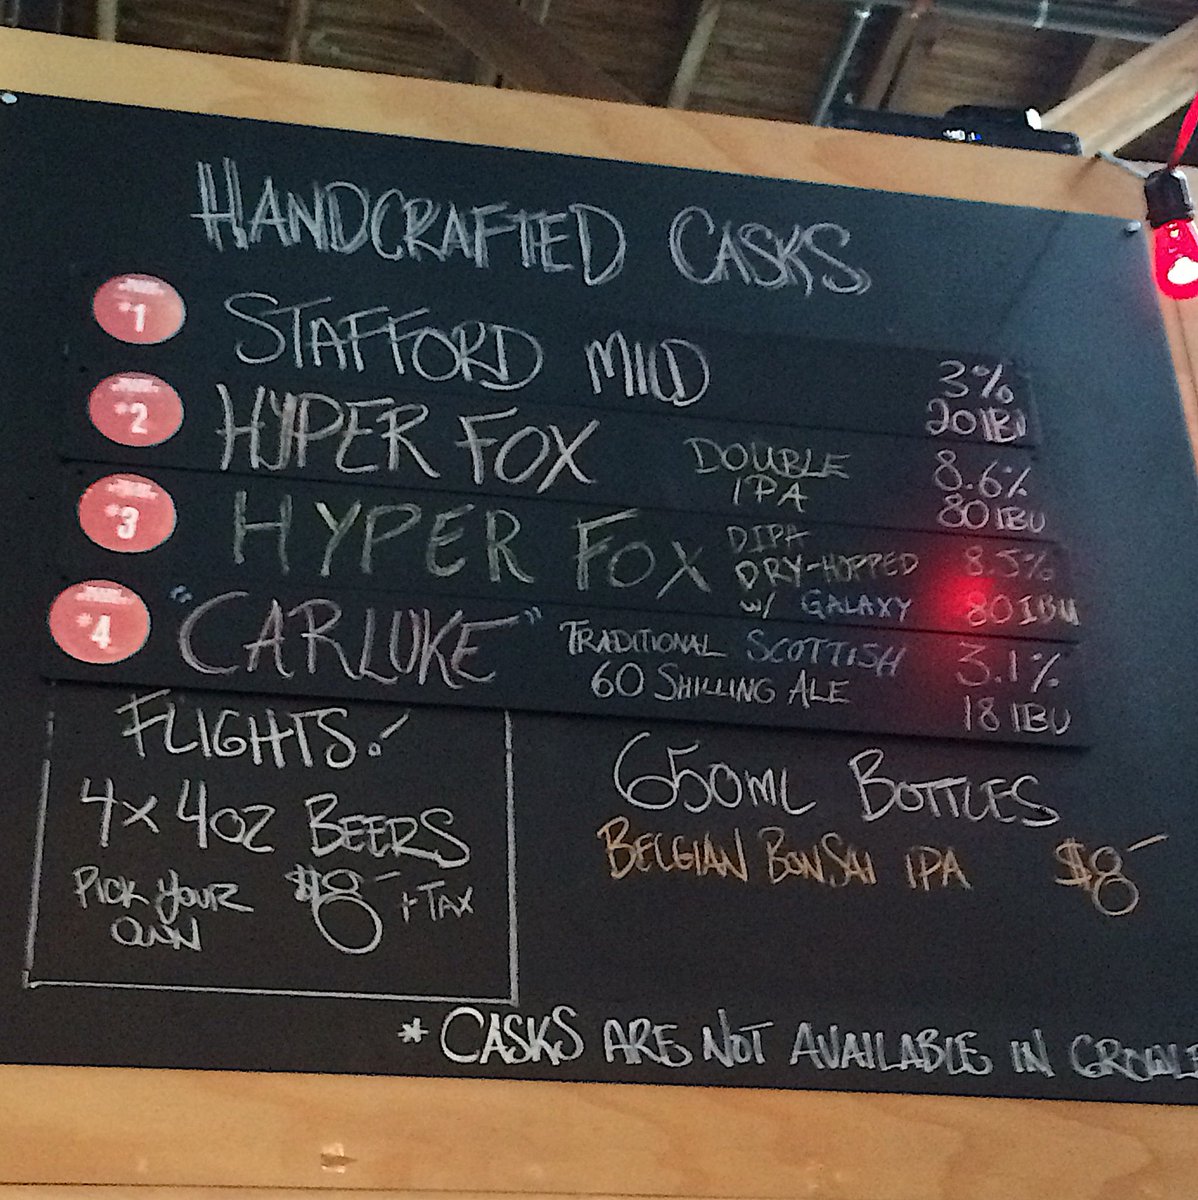 HANDCRAFTED CASKS
#1 STAFFORD MILD 3%
20 IBU
#2 HYPER FOX DOUBLE IPA 8.6%
80 IBU
#3 HYPER FOX DIPA
DRY-HOPPED 8.5%
W/ GALAXY 80 IBU
#4 "CARLUKE" TRADITIONAL SCOTTISH 3.1%
60 SHILLING ALE 18 IBU
FLIGHTS!
4 x 4OZ BEERS
PICK YOUR OWN $8- + TAX
650ML BOTTLES
BELGIAN BONSAI IPA $8-
* CASKS ARE NOT AVAILABLE IN GROWLE